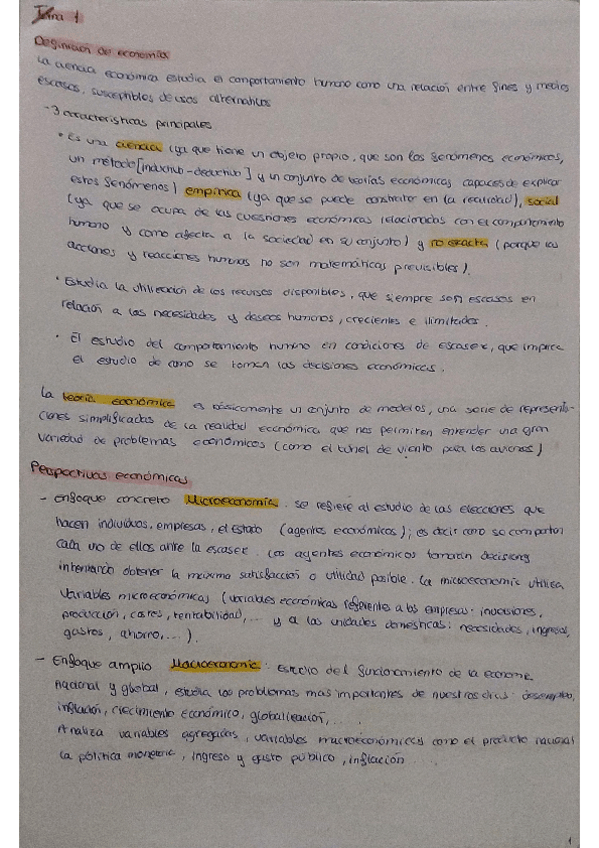 Tema 1
Definición de economía
La ciencia económica estudia el comportamiento humano como una relación entre fines y medios
escasos, susceptibles de usos alternativos
- 3 características principales
• Es una ciencia (ya que tiene un objeto propio, que son los fenómenos económicos,
un método [inductivo-deductivo] y un conjunto de teorías económicas capaces de explicar
estos fenómenos) empírica (ya que se puede constrastar en la realidad), social
(ya que se ocupa de las cuestiones económicas relacionadas con el comportamiento
humano y como afecta a la sociedad en su conjunto) y no exacta (porque las
acciones y reacciones humanas no son matemáticas previsibles).
• Estudia la utilización de los recursos disponibles, que siempre son escasos en
relación a las necesidades y deseos humanos, crecientes e ilimitados.
• El estudio del comportamiento humano en condiciones de escasez, que implica
el estudio de como se toman las decisiones económicas.
La teoría económica es básicamente un conjunto de modelos, una serie de representa-
ciones simplificadas de la realidad económica que nos permiten entender una gran
variedad de problemas económicos (como el túnel de viento para los aviones)
Perspectivas económicas
- Enfoque concreto Microeconomía: se refiere al estudio de las elecciones que
hacen individuos, empresas, el estado (agentes económicos); es decir como se comportan
cada uno de ellos ante la escasez. Los agentes económicos tomarán decisiones
intentando obtener la máxima satisfacción o utilidad posible. La microeconomía utiliza
variables microeconómicas (variables económicas referentes a las empresas: inversiones,
producción, costes, rentabilidad, ... y a las unidades domésticas: necesidades, ingresos,
gastos, ahorro, ...).
- Enfoque amplio Macroeconomía: Estudio del funcionamiento de la economía
nacional y global, estudia los problemas más importantes de nuestros días: desempleo,
inflación, crecimiento económico, globalización, ....
Analiza variables agregadas, variables macroeconómicas como el producto nacional
la política monetaria, ingreso y gasto público, inflación ....
1